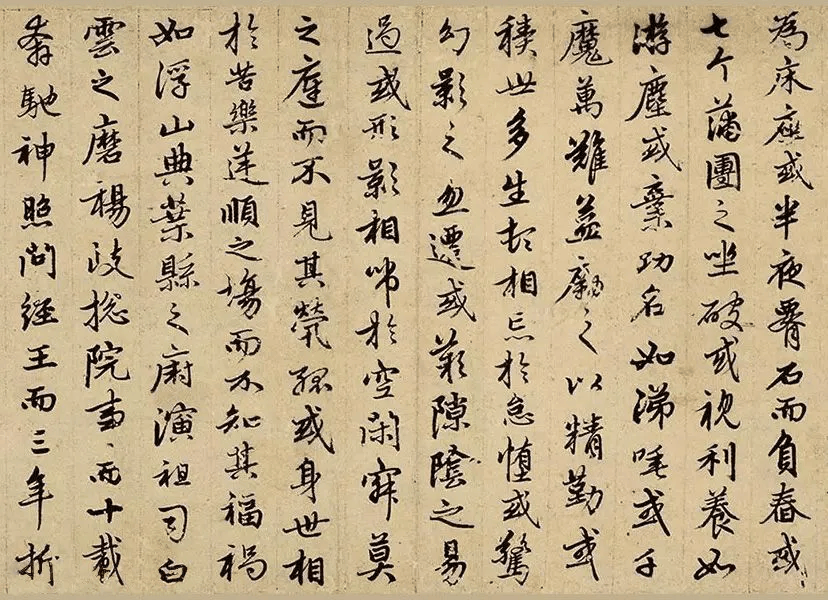 為床座或半夜腰石而負舂或
七个蒲團之坐破或視利養如
游塵或棄功名如涕唾或千
魔萬難益勵之以精勤或
積世多生頓相忘於怠堕或驚
幻影之忽遷或歎隙陰之易
過或形影相吊於空閑寂莫
之庭而不見其煢孤或身世相
於苦樂逆順之場而不知其福禍
如浮山典葉縣之廚演祖司白
雲之磨楊歧總院事而十載
奔馳神照問經王而三年折